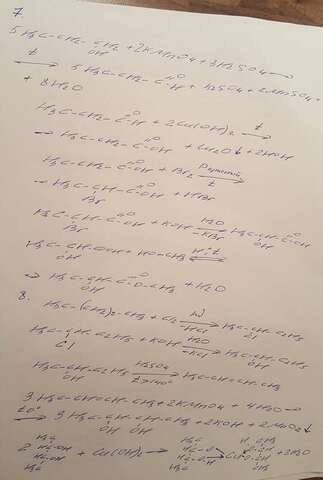 7.
5H₃C–CH₂–CH₂ + 2KMnO₄ + 3H₂SO₄ →
OH
t → 5H₃C–CH₂–C=O H + K₂SO₄ + 2MnSO₄ +
+ 8H₂O
H₃C–CH₂–C=O H + 2Cu(OH)₂ t →
→ H₃C–CH₂–C=O OH + Cu₂O↓ + 2H₂O
H₃C–CH₂–C=O OH + Br₂ t →
→ H₃C–CH–C=O OH + HBr
Br
H₃C–CH–C=O OH + KOH H₂O –KBr → H₃C–CH–C=O OH
Br OH
H₃C–CH–COOH + HO–CH₃ H⁺; t ⇌
OH
⇒ H₃C–CH–C=O O–CH₃ + H₂O
OH
8.
H₃C–(CH₂)₂–CH₃ + Cl₂ hν –HCl → H₃C–CH–C₂H₅
Cl
H₃C–CH–C₂H₅ + KOH H₂O –KCl → H₃C–CH–C₂H₅
Cl OH
H₃C–CH–C₂H₅ H₂SO₄ t>140° → H₃C–CH=CH–CH₃
OH
3H₃C–CH=CH–CH₃ + 2KMnO₄ + 4H₂O →
t 0° → 3H₃C–CH–CH–CH₃ + 2KOH + 2MnO₂↓
OH OH
2 H₃C HC–OH HC–OH H₃C + Cu(OH)₂ → + 2H₂O